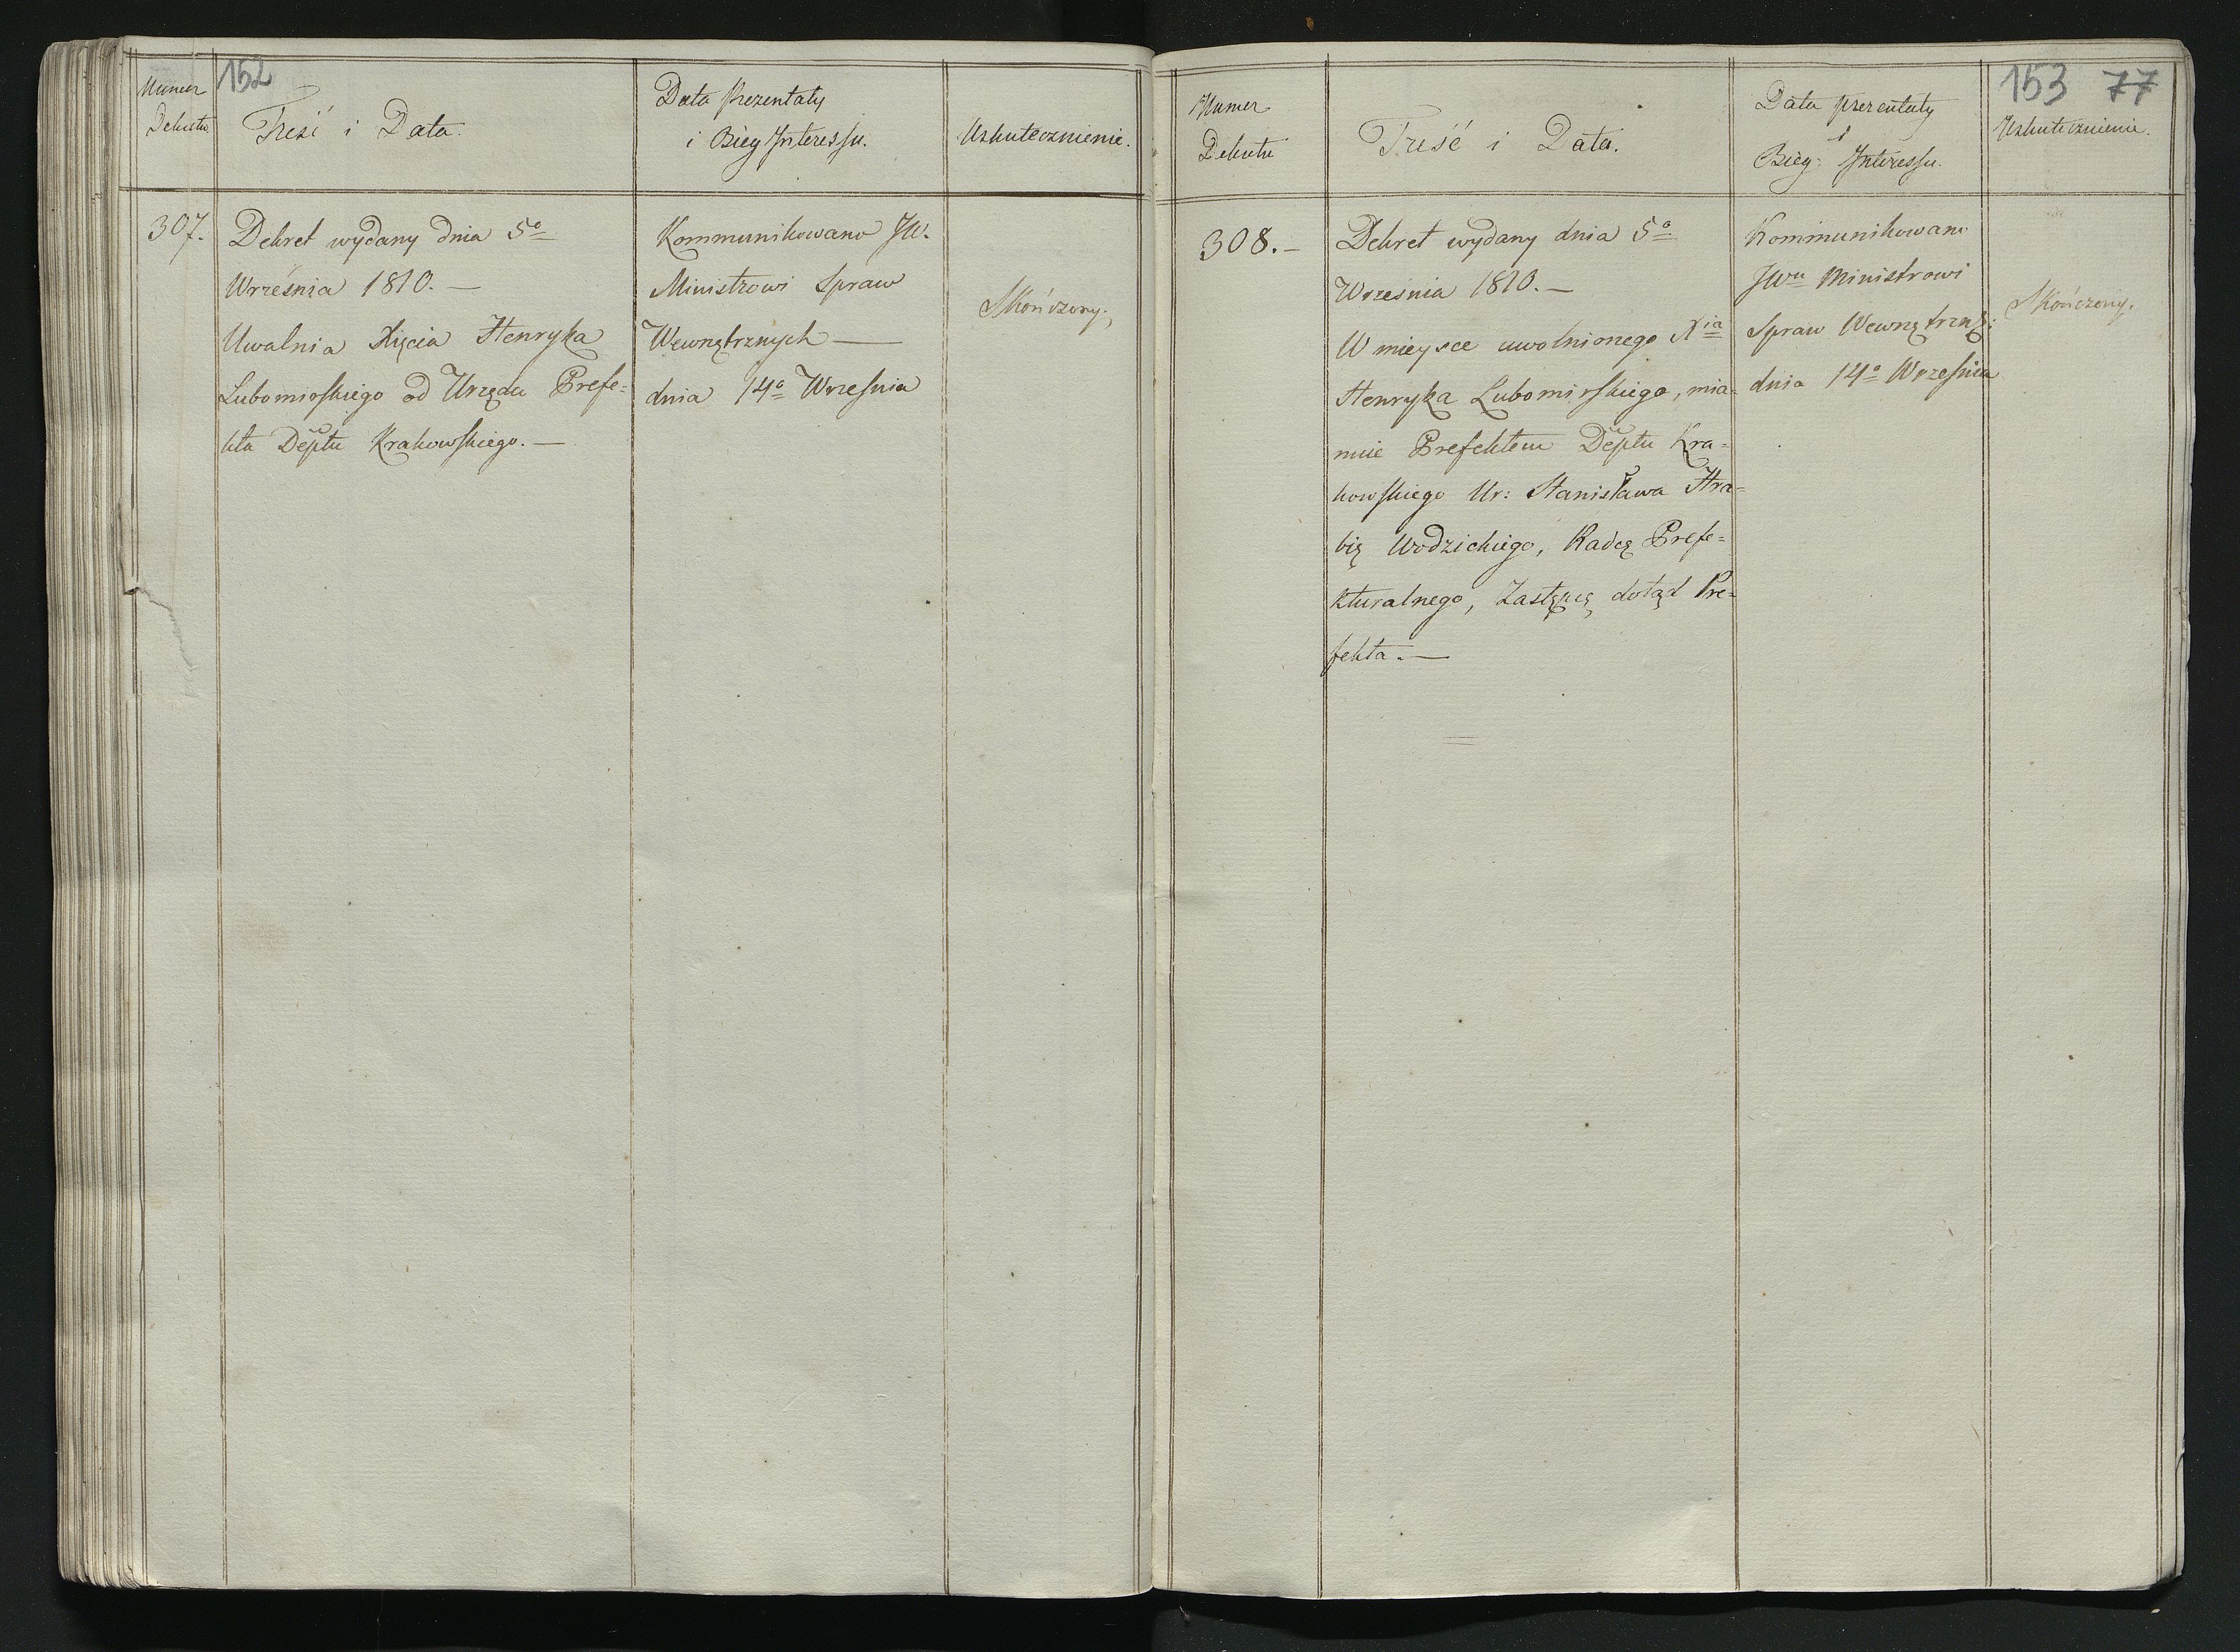 152
Numer
Dekretu
Treść i Data.
Data Prezentaty
i Bieg Interessu.
Uskutecznienie.
307.
Dekret wydany dnia 5º
Września 1810. —
Uwalnia Xięcia Henryka
Lubomirskiego od Urzędu Prefe=
kta Deptu Krakowskiego. —
Kommunikowano JW.
Ministrowi Spraw
Wewnętrznych —
dnia 14º Września
Skończony.
153 77
Numer
Dekretu
Treść i Data.
Data prezentaty
i
Bieg Interessu.
Uskutecznienie.
308. —
Dekret wydany dnia 5º
Września 1810. —
W mieysce uwolnionego Xia
Henryka Lubomirskiego, mia=
nuie Prefektem Deptu Kra=
kowskiego Ur: Stanisława Hra=
bię Wodzickiego, Radcę Prefe=
kturalnego, Zastępcę dotąd Pre=
fekta. —
Kommunikowano
JWu Ministrowi
Spraw Wewnętrzny:
dnia 14º Września
Skończony.